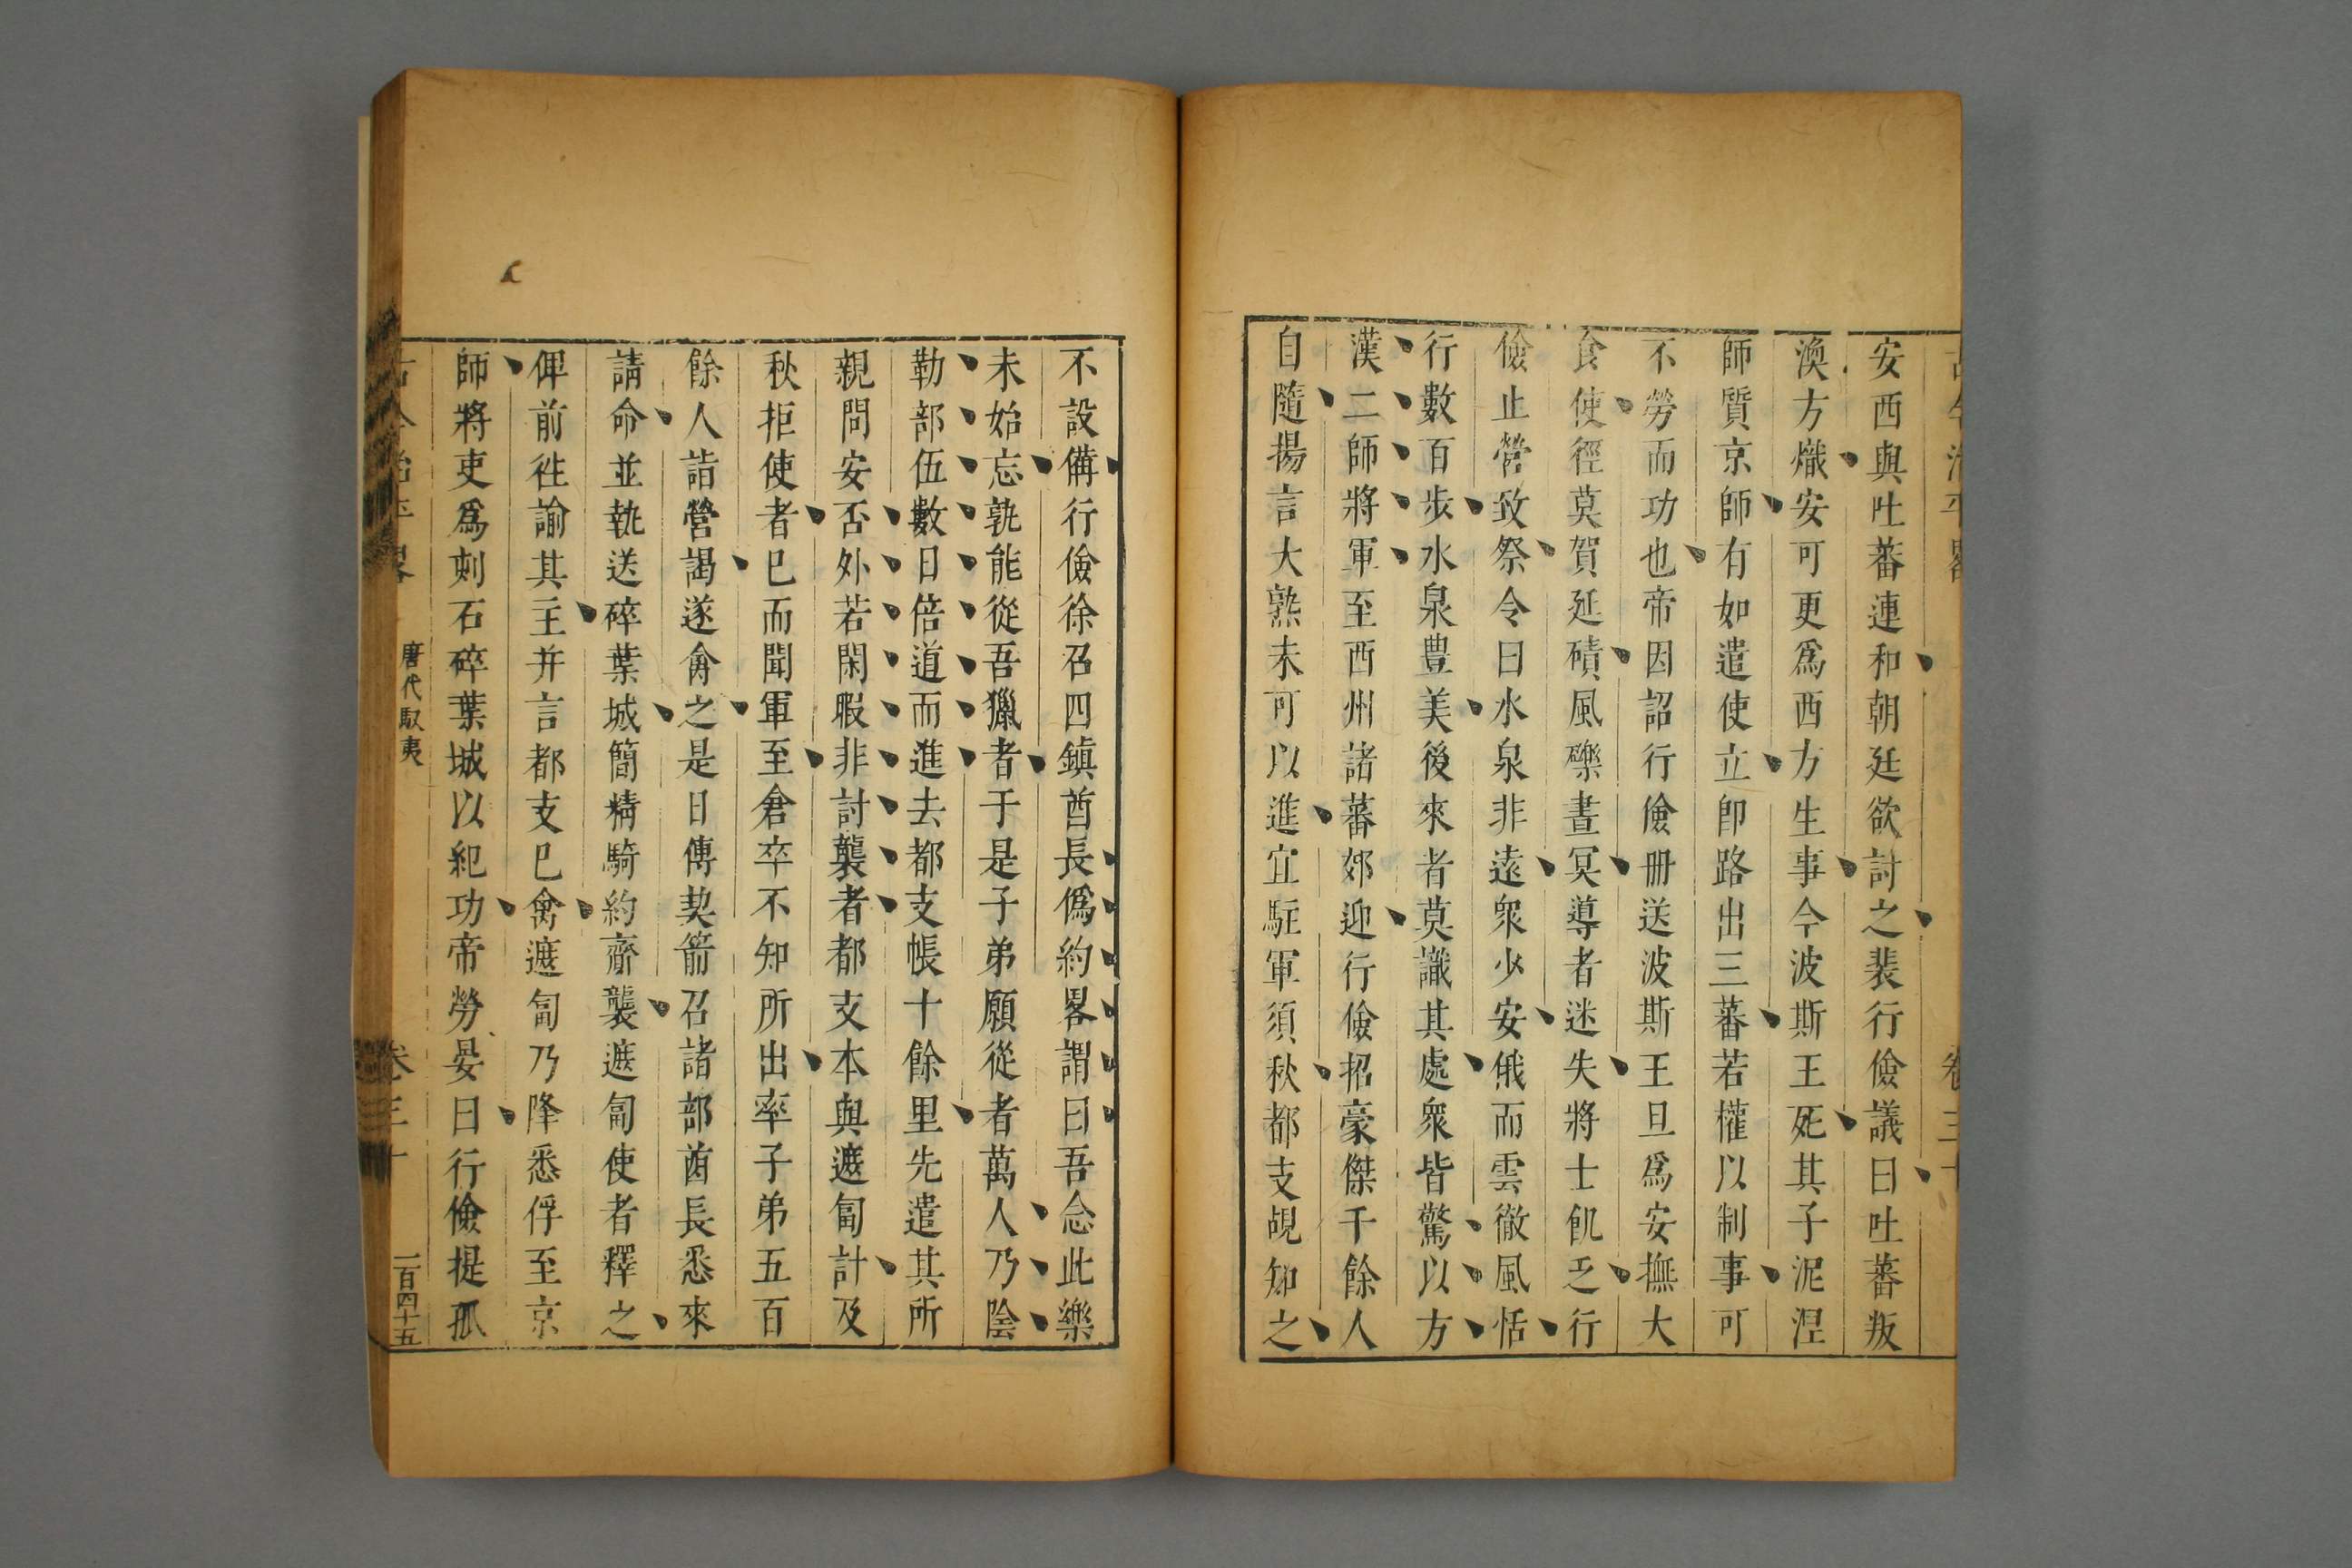 安西與吐蕃連和朝廷欲討之裴行儉議曰吐蕃叛
渙方熾安可更爲西方生事今波斯王死其子泥涅
師質京師有如遣使立卽路出三蕃若權以制事可
不勞而功也帝因詔行儉册送波斯王且爲安撫大
食使徑莫賀延磧風礫晝冥導者迷失將士飢乏行
儉止營致祭令曰水泉非遠衆少安俄而雲徹風恬
行數百步水泉豊美後來者莫識其處衆皆驚以方
漢二師將軍至西州諸蕃郊迎行儉招豪傑千餘人
自隨揚言大熱未可以進宜駐軍須秋都支覘知之
不設備行儉徐召四鎮酋長僞約畧謂曰吾念此樂
未始忘孰能從吾獵者于是子弟願從者萬人乃陰
勒部伍數日倍道而進去都支帳十餘里先遣其所
親問安否外若閑暇非討襲者都支本與遮匐計及
秋拒使者已而聞軍至倉卒不知所出率子弟五百
餘人詣營謁遂禽之是日傳契箭召諸部酋長悉來
請命並執送碎葉城簡精騎約齎襲遮匐使者釋之
俾前徃諭其主并言都支已禽遮匐乃降悉俘至京
師將吏爲刻石碎葉城以紀功帝勞晏曰行儉提孤
唐代馭夷
卷三十
一百四十五